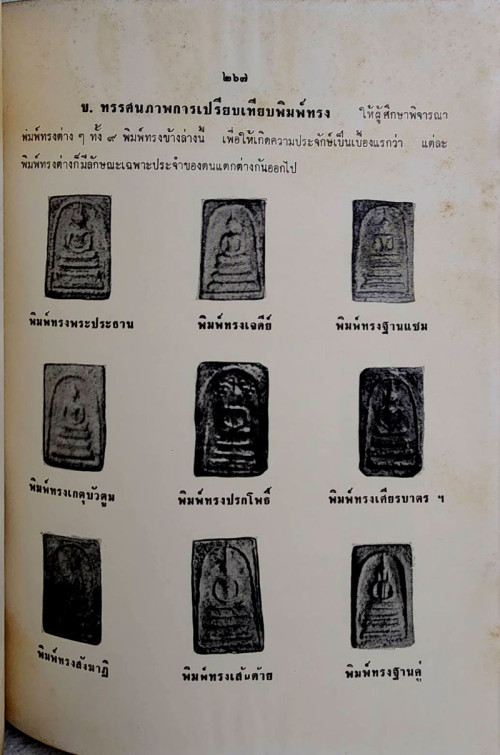 ๒๖๗
ข. ทรรศนภาพการเปรียบเทียบพิมพ์ทรง ให้ผู้ศึกษาพิจารณา
พิมพ์ทรงต่าง ๆ ทั้ง ๙ พิมพ์ทรงข้างล่างนี้ เพื่อให้เกิดความประจักษ์เป็นเบื้องแรกว่า แต่ละ
พิมพ์ทรงต่างก็มีลักษณะเฉพาะประจำของตนแตกต่างกันออกไป
พิมพ์ทรงพระประธาน พิมพ์ทรงเจดีย์ พิมพ์ทรงฐานแซม
พิมพ์ทรงเกตุบัวตูม พิมพ์ทรงปรกโพธิ์ พิมพ์ทรงเศียรบาตร ฯ
พิมพ์ทรงสังฆาฏิ พิมพ์ทรงเส้นด้าย พิมพ์ทรงฐานคู่